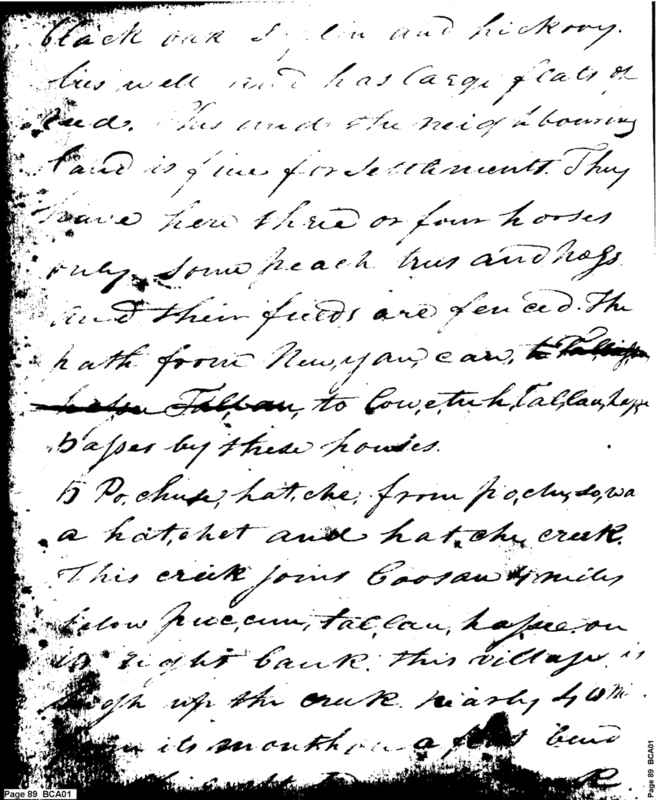 black oak and hickory.
lies well and has large flats of
reed. This and the neighbouring
land is fine for settlements. They
have here three or four houses
only some peach trees and hogs
and their fields are fenced. The
path from New,yau,cau, to
to Cow,e,tuh,Tal,lau,has,se
passes by these houses.
5 Po,chuse,hat,che, from po,chu,so,wa
a hatchet and hat,che, creek.
This creek joins Coosau 4 miles
below puc,cun,tal,lau,hasse on
its right bank. this village is
high up the creek nearly 40 m.
from its mouth on a flat bend
Page 89 BCA01
Page 89 BCA01